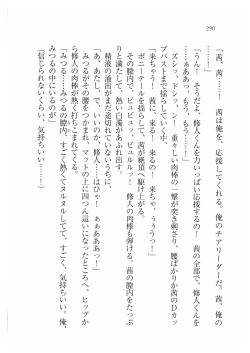 290
「茜、茜……！　茜は俺を、応援してくれる。俺のチアリーダーだ。茜、俺の
「うん……！　そうだよ、修人くんを力いっぱい応援するの！　茜の全部で、修人くんを
……ぁああっ、もう、もうっ！」
ズシッ、ドシッ、ンー！　重々しい肉棒の一撃が突き刺さり、腰ばかりか茜のＤカッ
プバストまで揺らしていく中、
「来ちゃう！　茜に、来るっ……来る、来ちゃう、ぅうっ！」
ポニーテールを揺らして、茜が絶頂へ駆け上がる。
その膣内で、ビュビュッ、ビュルルッ！　修人の肉棒も弾ける。茜の膣内をたっぷ
りと満たして、熱い白濁があふれ出す。
精液の涌出がまだ途切れていないうちに、
「あ、あたし、で、いいのか、修人……はひゃ！　ぁああああっ！」
みつるがその腰をつかまれた。マットの上に四つん這いになったところへ、ヒップか
ら修人の肉棒が熱く打ちこまれてくる。
「みつる……みつるの膣内、すごく熱くてヌルヌルしてて、すごく、気持ちいい。俺、
みつるの中にいるのが」
（信じられないくらい、気持ちいい……）